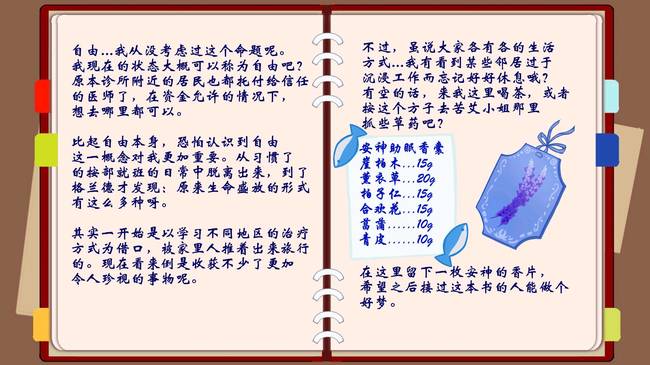 自由...我从没考虑过这个命题呢。
我现在的状态大概可以称为自由吧？
原本诊所附近的居民也都托付给信任
的医师了，在资金允许的情况下，
想去哪里都可以。
比起自由本身，恐怕认识到自由
这一概念对我更加重要。从习惯了
的按部就班的日常中脱离出来，到了
格兰德才发现：原来生命盛放的形式
有这么多种呀。
其实一开始是以学习不同地区的治疗
方式为借口，被家里人推着出来旅行
的。现在看来倒是收获不少了更加
令人珍视的事物呢。
不过，虽说大家各有各的生活
方式...我有看到某些邻居过于
沉浸工作而忘记好好休息哦？
有空的话，来我这里喝茶，或者
按这个方子去苦艾小姐那里
抓些草药吧？
安神助眠香囊
崖柏木...15g
薰衣草...20g
柏子仁...15g
合欢花...15g
菖蒲......10g
青皮......10g
在这里留下一枚安神的香片，
希望之后接过这本书的人能做个
好梦。